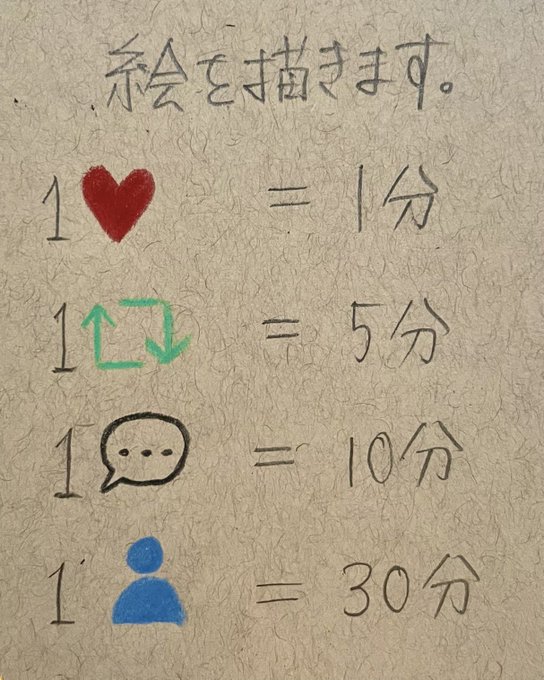 絵を描きます。
1 = 1分
1 = 5分
1 = 10分
1 = 30分